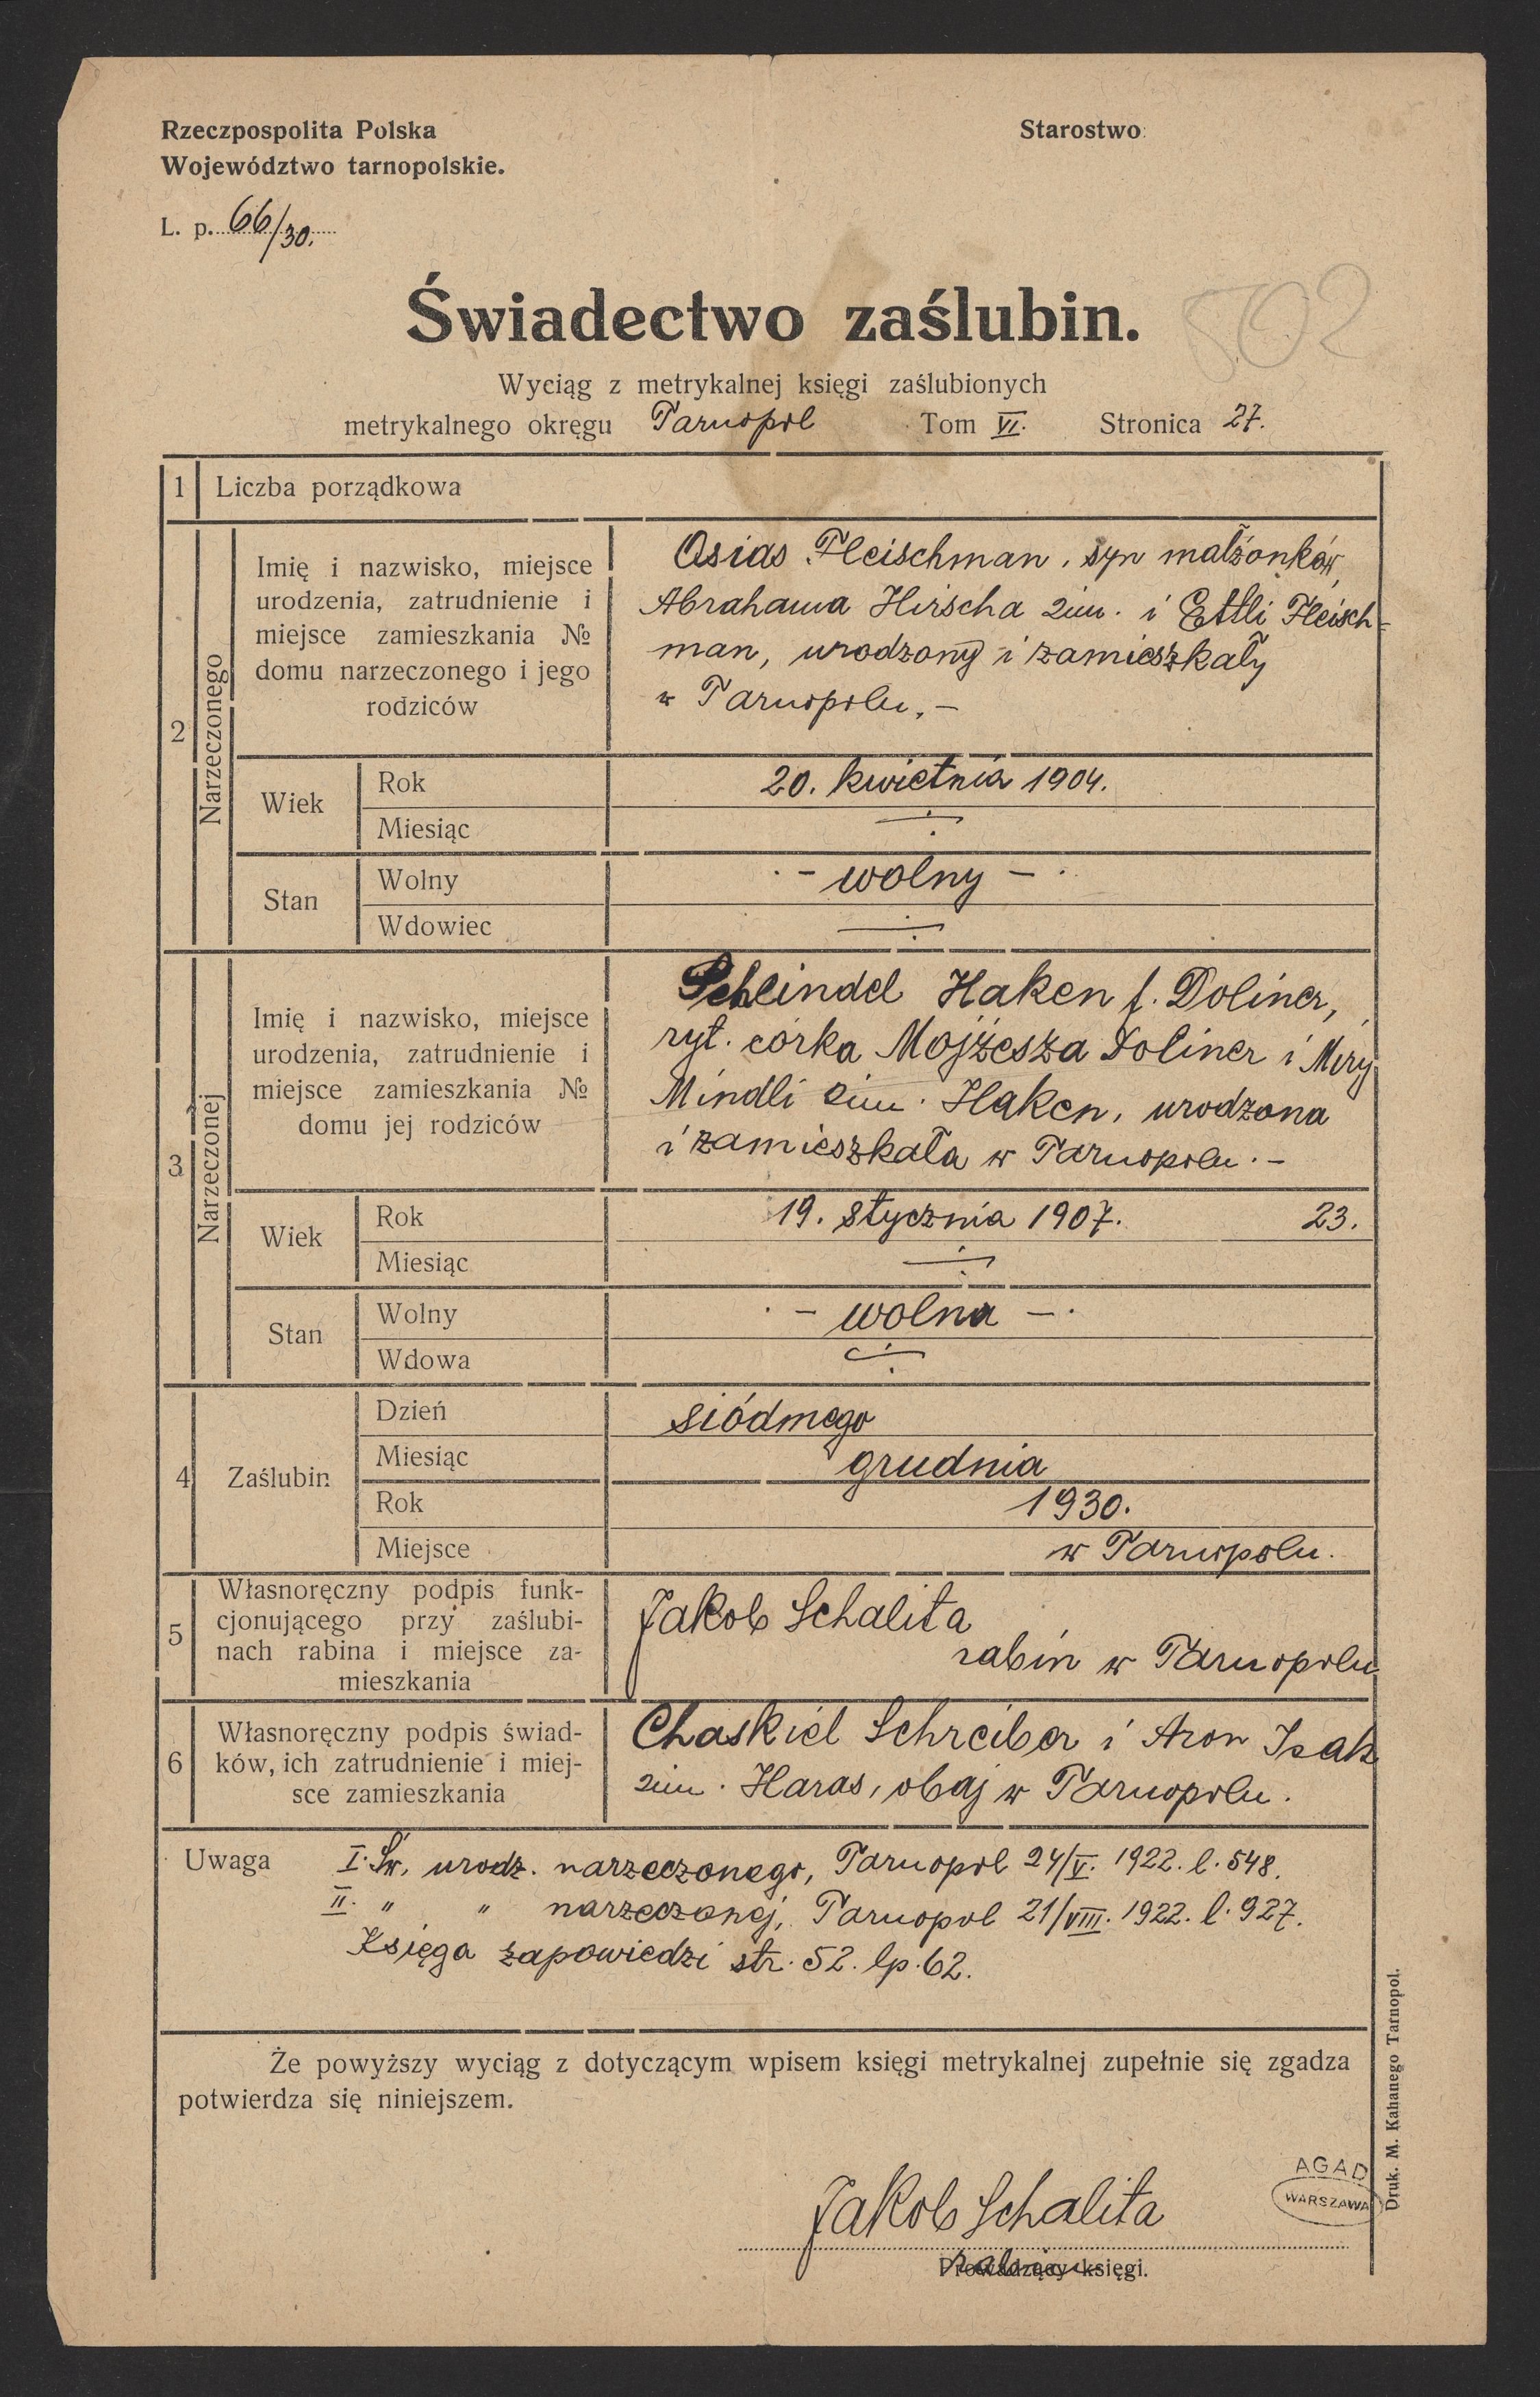 Rzeczpospolita Polska
Starostwo
Województwo tarnopolskie.
L. p. 66/30.
Świadectwo zaślubin.
502
Wyciąg z metrykalnej księgi zaślubionych
metrykalnego okręgu Tarnopol Tom VI. Stronica 27.
1 Liczba porządkowa
2
Narzeczonego
Imię i nazwisko, miejsce
urodzenia, zatrudnienie i
miejsce zamieszkania №
domu narzeczonego i jego
rodziców
Osias Fleischman, syn małżonków
Abrahama Hirscha 2im. i Ettli Fleisch-
man, urodzony i zamieszkały
w Tarnopolu.—
Wiek
Rok
20. kwietnia 1904.
Miesiąc
Stan
Wolny
— wolny —
Wdowiec
3
Narzeczonej
Imię i nazwisko, miejsce
urodzenia, zatrudnienie i
miejsce zamieszkania №
domu jej rodziców
Scheindel Haken f. Doliner,
ryt. córka Mojżesza Doliner i Miry
Mindli 2im. Haken, urodzona
i zamieszkała w Tarnopolu.—
Wiek
Rok
19. stycznia 1907. 23.
Miesiąc
Stan
Wolny
— wolna —
Wdowa
4 Zaślubin
Dzień
siódmego
Miesiąc
grudnia
Rok
1930.
Miejsce
w Tarnopolu.
5
Własnoręczny podpis funk-
cjonującego przy zaślubi-
nach rabina i miejsce za-
mieszkania
Jakob Schalita
rabin w Tarnopolu
6
Własnoręczny podpis świad-
ków, ich zatrudnienie i miej-
sce zamieszkania
Chaskiel Schreiber i Aron Izak
2im. Haras, obaj w Tarnopolu.
Uwaga
I. Św. urodz. narzeczonego, Tarnopol 24/V. 1922. l. 548.
II. " " narzeczonej, Tarnopol 21/VIII. 1922. l. 927.
Księga zapowiedzi str. 52. lp. 62.
Że powyższy wyciąg z dotyczącym wpisem księgi metrykalnej zupełnie się zgadza
potwierdza się niniejszem.
Jakob Schalita
rabin
Prowadzący księgi.
AGAD
WARSZAWA
Druk. M. Kahanego Tarnopol.